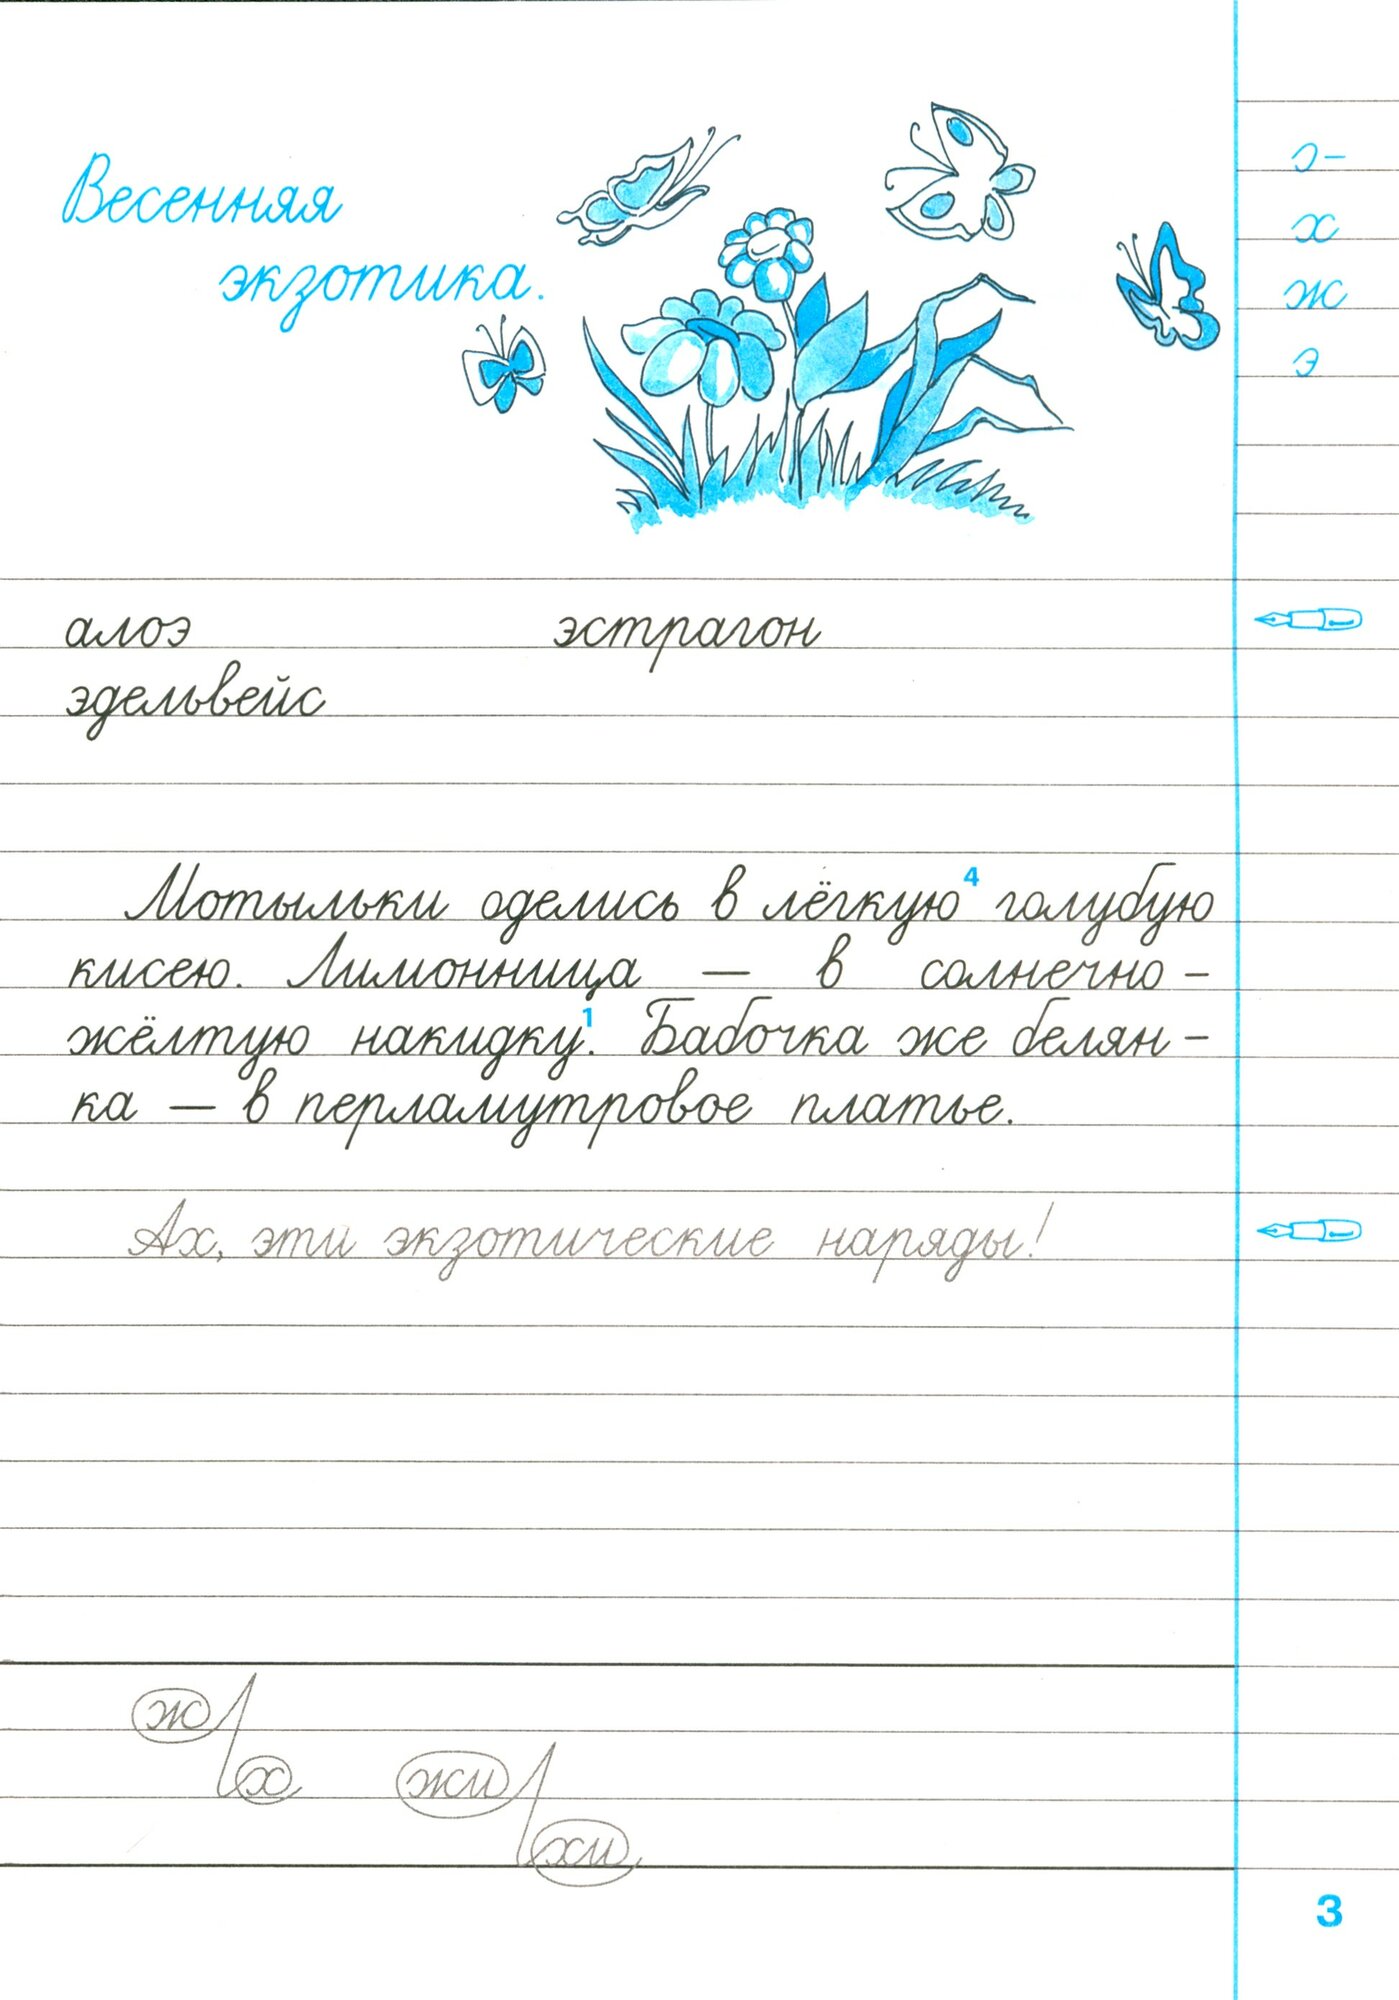 Весенняя
экзотика.
с-
х
ж
э
алоэ эстрагон
эдельвейс
Мотыльки оделись в лёгкую⁴ голубую
кисею. Лимонница — в солнечно-
жёлтую накидку¹. Бабочка же белян-
ка — в перламутровое платье.
Ах, эти экзотические наряды!
ж
х жи
хи
3